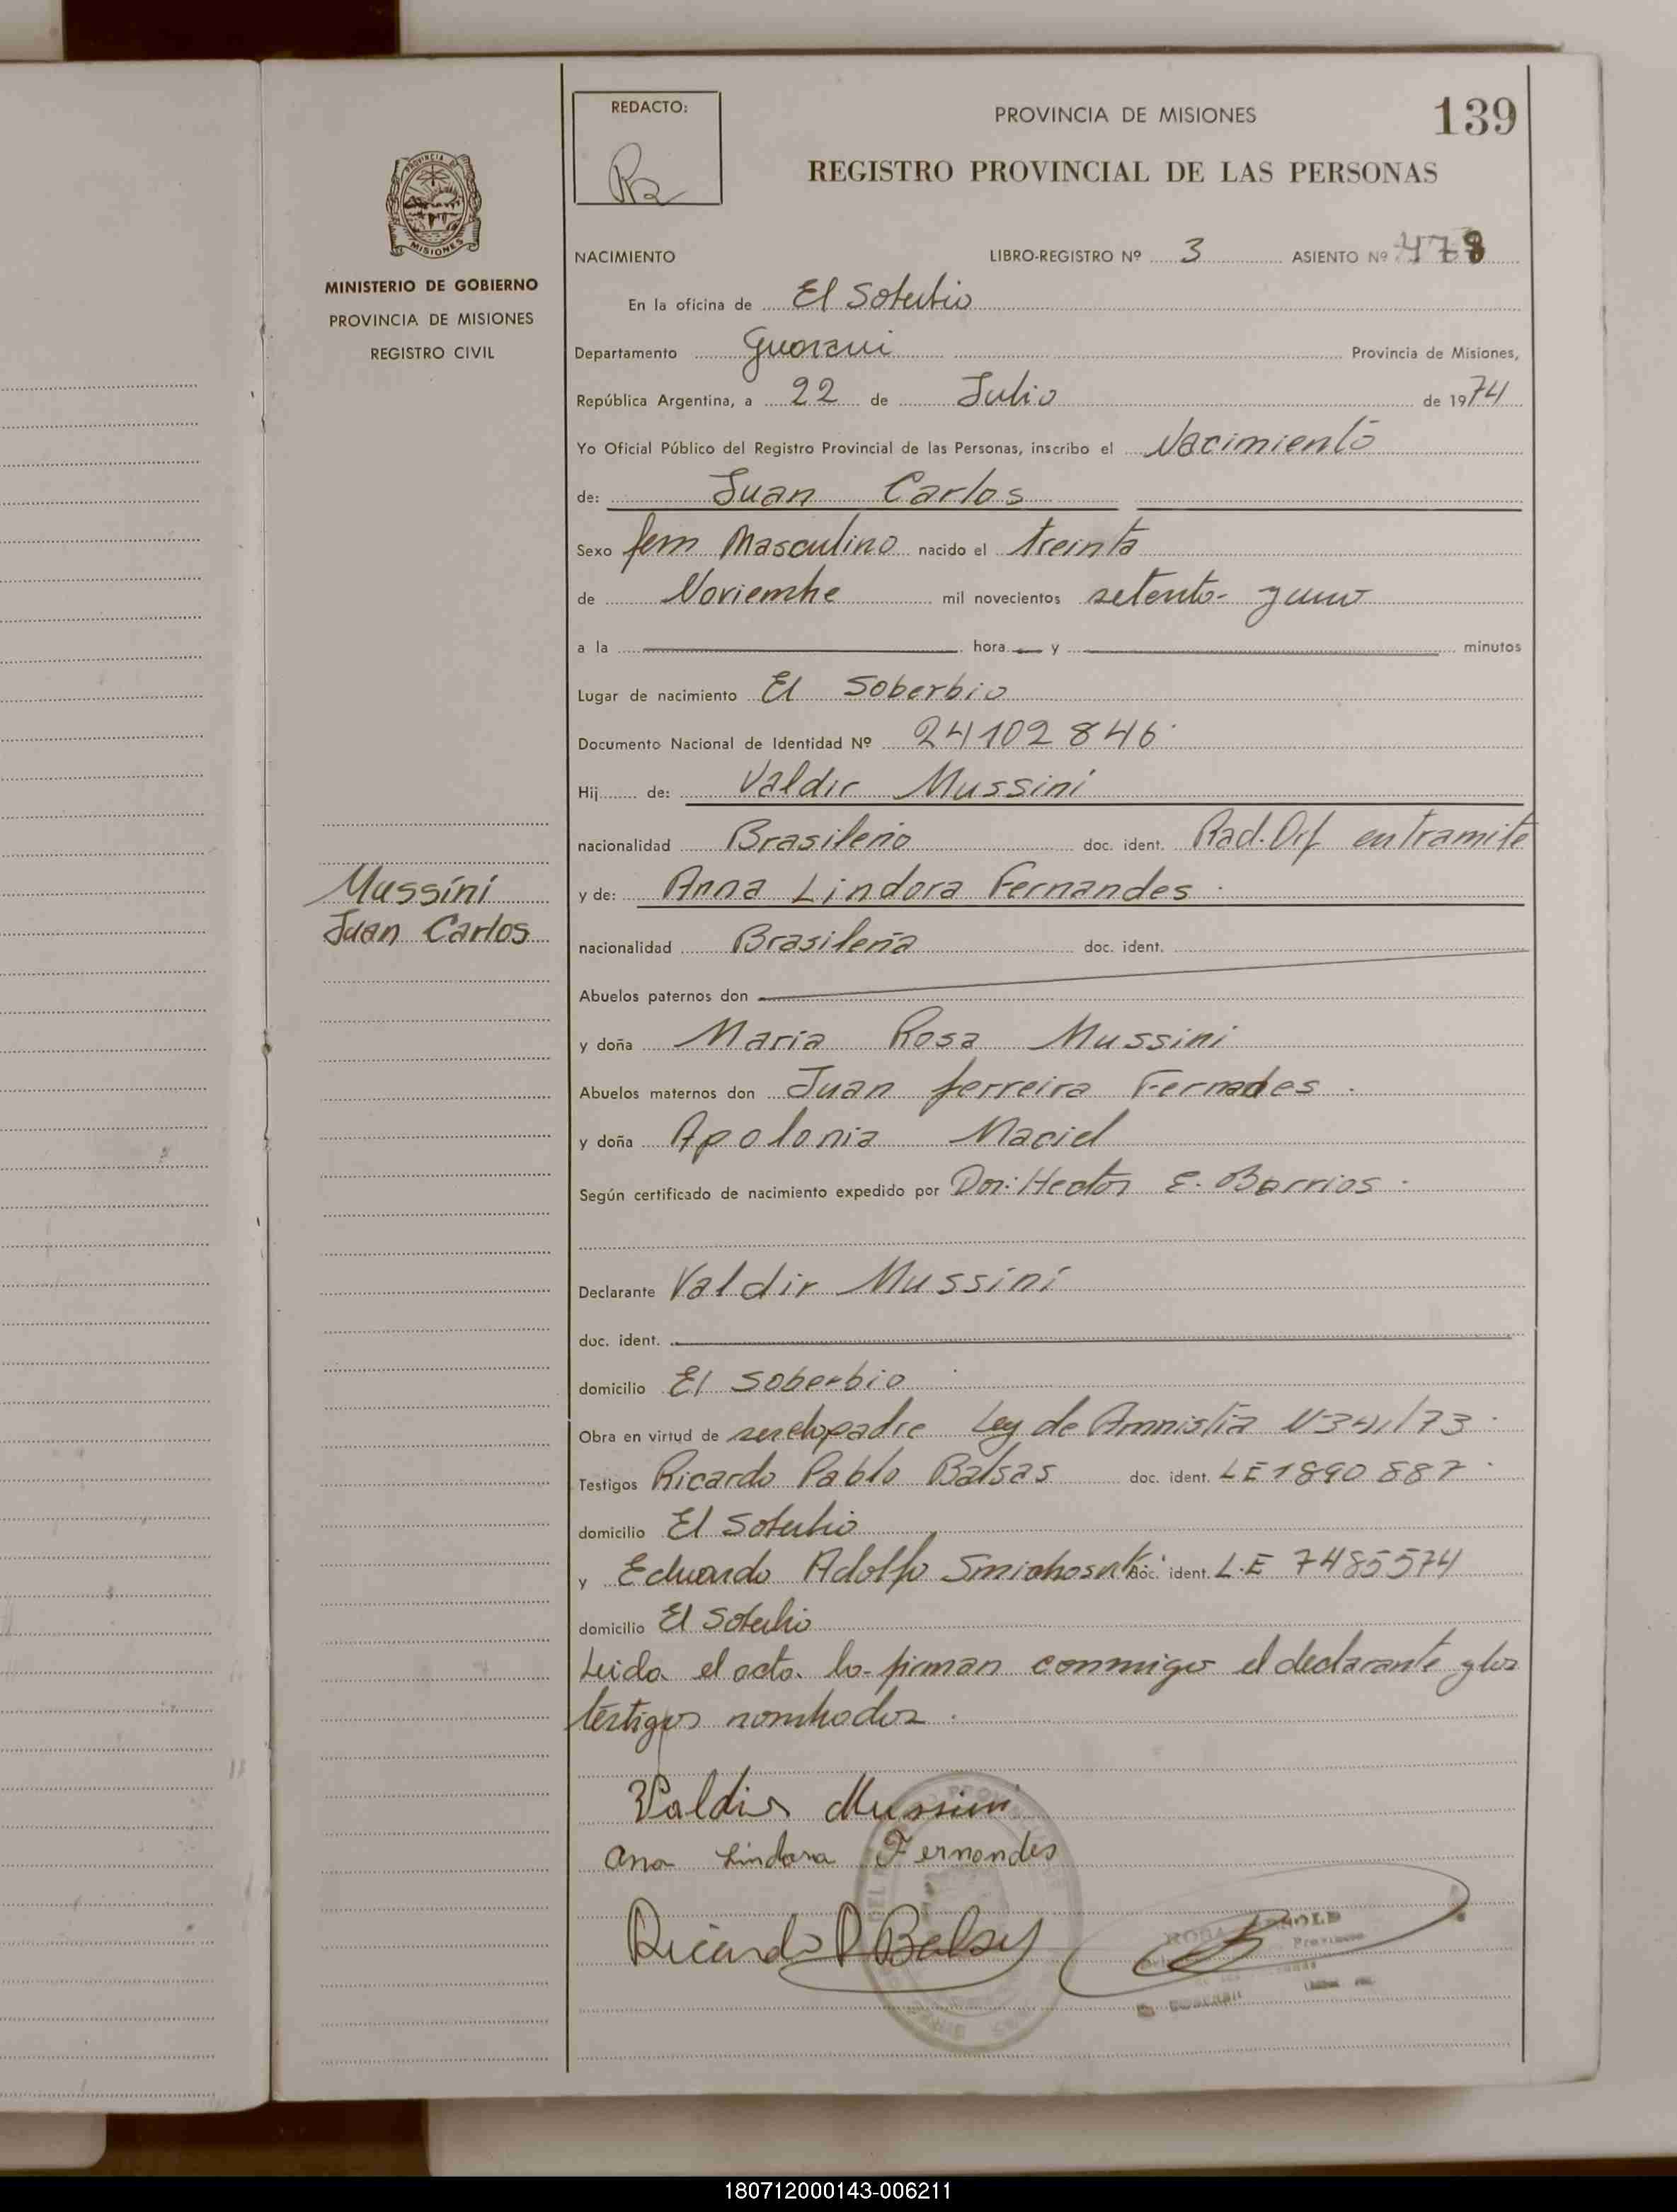 REDACTO:
PROVINCIA DE MISIONES
139
REGISTRO PROVINCIAL DE LAS PERSONAS
PROVINCIA DE
MISIONES
MINISTERIO DE GOBIERNO
PROVINCIA DE MISIONES
REGISTRO CIVIL
NACIMIENTO LIBRO-REGISTRO Nº 3 ASIENTO Nº 478
En la oficina de El Soberbio
Departamento Guarani Provincia de Misiones,
República Argentina, a 22 de Julio de 1974
Yo Oficial Público del Registro Provincial de las Personas, inscribo el Nacimiento
de: Juan Carlos
Sexo fem Masculino nacido el treinta
de Noviembre mil novecientos setenta y uno
a la hora y minutos
Lugar de nacimiento El Soberbio
Documento Nacional de Identidad Nº 24102846
Hij de: Valdir Mussini
nacionalidad Brasileño doc. ident. Rad. Orf en tramite
Mussini
Juan Carlos
y de: Anna Lindora Fernandes
nacionalidad Brasileña doc. ident.
Abuelos paternos don
y doña Maria Rosa Mussini
Abuelos maternos don Juan ferreira Fernades
y doña Apolonia Maciel
Según certificado de nacimiento expedido por Dor: Hector E. Barrios
Declarante Valdir Mussini
doc. ident.
domicilio El Soberbio
Obra en virtud de ser el padre Ley de Amnistia
Testigos Ricardo Pablo Balsas doc. ident. LE 1890887
domicilio El Soberbio
y Eduardo Adolfo doc. ident. L.E 7485574
domicilio El Soberbio
Leida el acta la firman conmigo el declarante y los
testigos nombrados.
Valdir Mussini
Ana Lindora Fernandes
Ricardo P Balsas
180712000143-006211